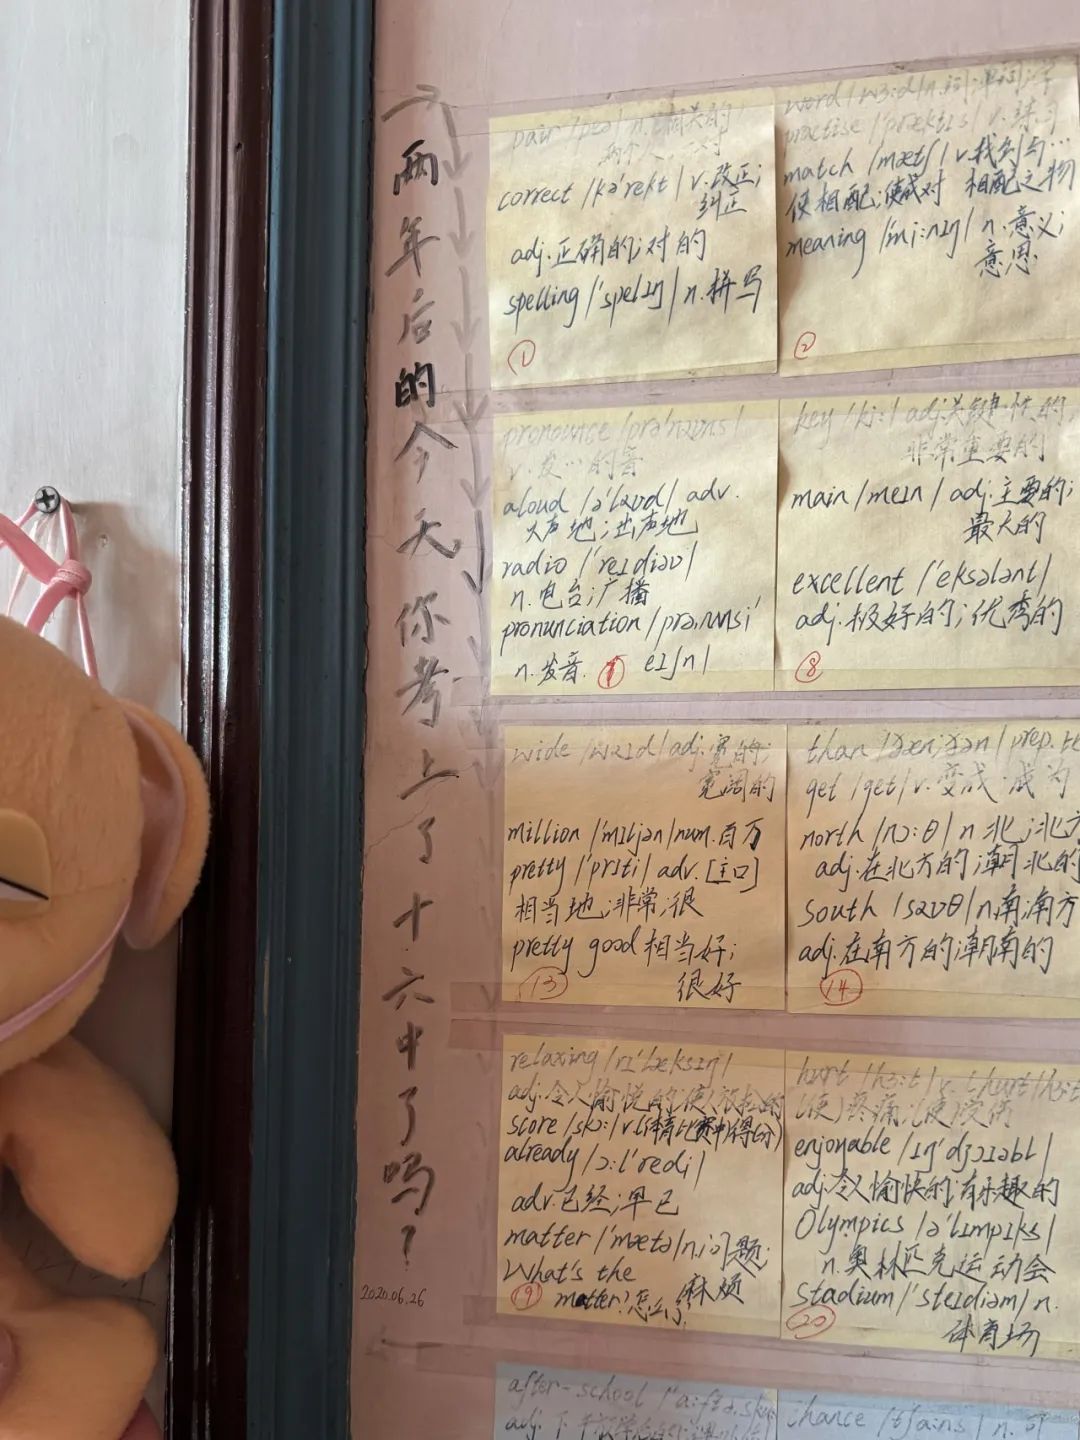 两年后的今天你考上了十六中了吗?
2020.06.26
pair /peə/ n.相关的
两个人
correct /kə'rekt/ v.改正;
纠正
adj.正确的;对的
spelling /'spelɪŋ/ n.拼写
①
word /wɜ:d/ n.词;单词;字
practise /'præktɪs/ v.练习
match /mætʃ/ v.找到与…
使相配;使成对 相配之物
meaning /'mi:nɪŋ/ n.意义;
意思
②
pronounce /prə'naʊns/
v.发…的音
aloud /ə'laʊd/ adv.
大声地;出声地
radio /'reɪdiəʊ/
n.电台;广播
pronunciation /prə,nʌnsi'
n.发音. eɪʃn/
key /ki:/ adj.关键性的,
非常重要的
main /meɪn/ adj.主要的;
最大的
excellent /'eksələnt/
adj.极好的;优秀的
⑧
wide /waɪd/ adj.宽的;
宽阔的
million /'mɪljən/ num.百万
pretty /'prɪti/ adv.[主口]
相当地;非常;很
pretty good 相当好;
⑬ 很好
than /ðæn;ðən/ prep.比
get /get/ v.变成;成为
north /nɔ:θ/ n.北;北方
adj.在北方的;朝北的
south /saʊθ/ n.南;南方
adj.在南方的;朝南的
⑭
relaxing /rɪ'læksɪŋ/
adj.令人愉悦的;使人放松的
score /skɔ:/ v.(体育比赛中)得分
already /ɔ:l'redi/
adv.已经;早已
matter /'mætə/ n.问题;
What's the 麻烦
⑲ matter?怎么了?
hurt /hɜ:t/ v.(hurt/hɜ:t
(使)疼痛;(使)受伤
enjoyable /ɪŋ'dʒɔɪəbl/
adj.令人愉快的;有乐趣的
Olympics /ə'lɪmpɪks/
n.奥林匹克运动会
Stadium /'steɪdiəm/ n.
⑳ 体育场
after-school /'a:ftə,sku:
adj.下午放学后的
chance /tʃa:ns/ n.可